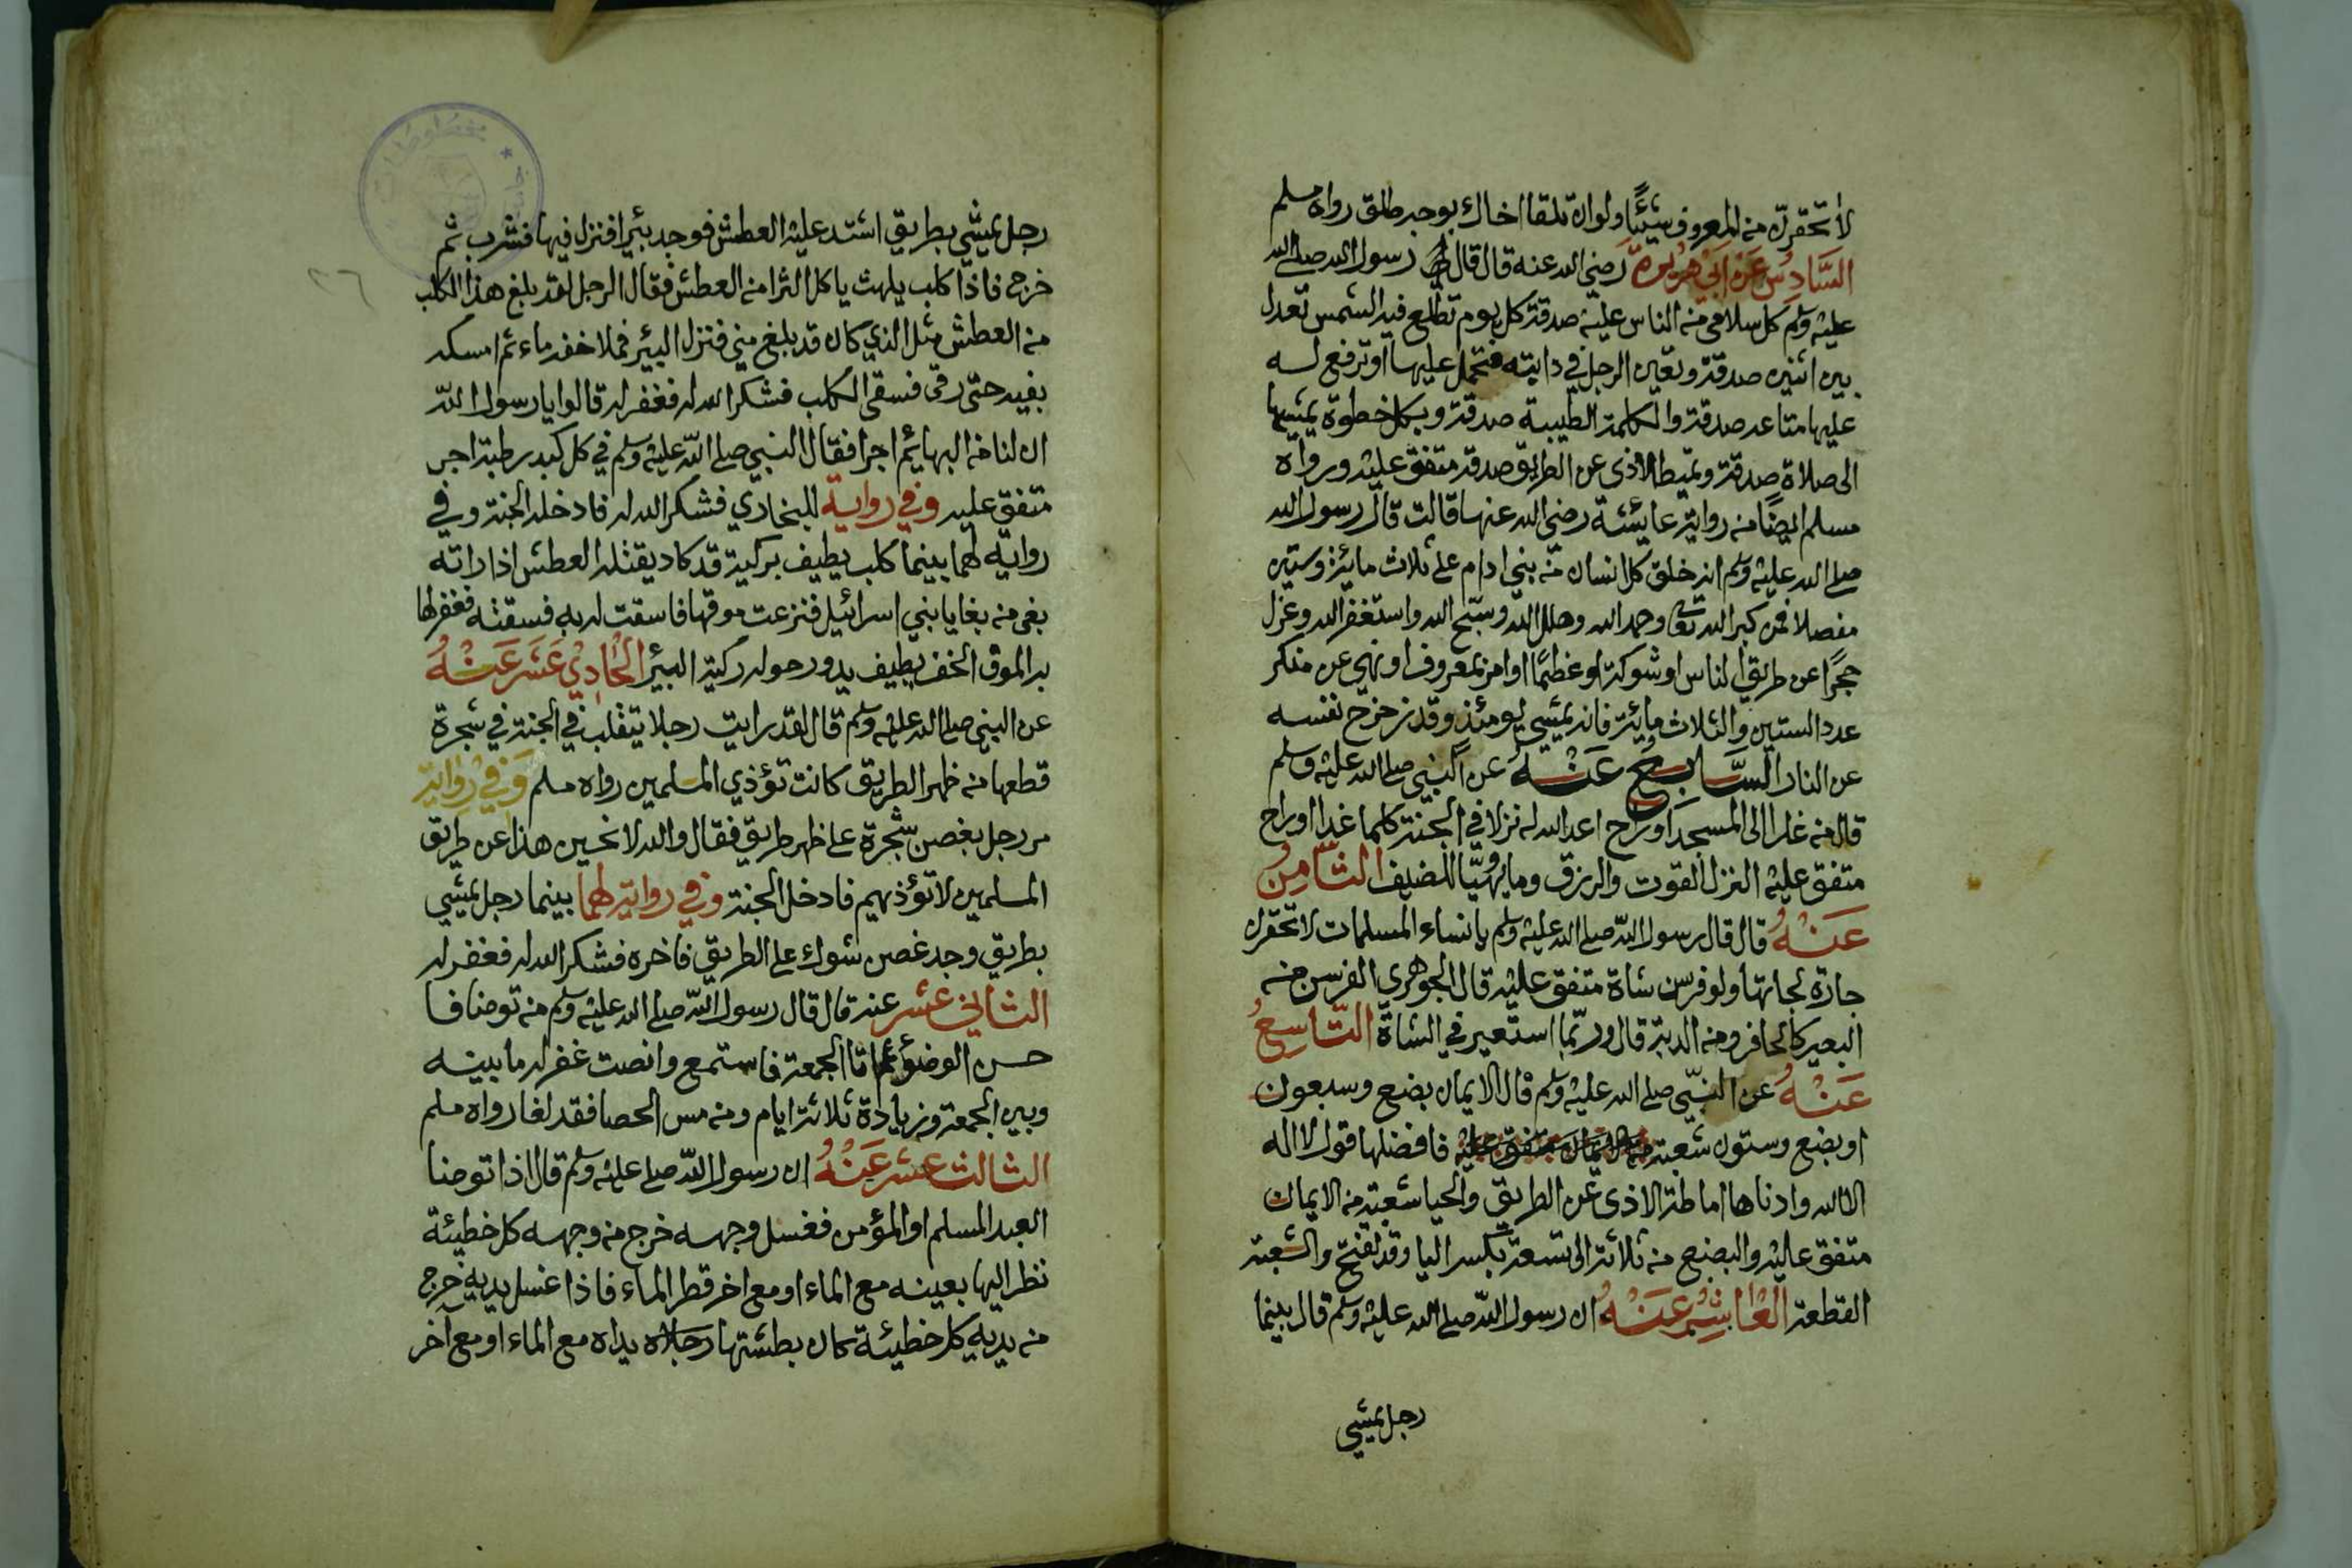 لا تحقرن من المعروف شيئًا ولو ان تلقا اخاك بوجه طلق رواه مسلم
السَّادِسُ عَنْ اَبِي هُرَيرَةَ رضي الله عنه قال قال رسول الله صلى الله
عليه وسلم كل سلامى من الناس عليه صدقة كل يوم تطلع فيه الشمس تعدل
بين اثنين صدقة وتعين الرجل في دابته فتحمل عليها او ترفع له
عليها متاعه صدقة والكلمة الطيبة صدقة وبكل خطوة يمشيها
الى صلاة صدقة وتميط الاذى عن الطريق صدقة متفق عليه ورواه
مسلم ايضًا من رواية عايشة رضي الله عنها قالت قال رسول الله
صلى الله عليه وسلم انه خلق كل انسان من بني ادام على ثلاث مائة وستين
مفصلا فمن كبر الله تعا وحمد الله وهلل الله وسبح الله واستغفر الله وعزل
حجرًا عن طريق الناس او شوكة او عظمًا او امر بمعروف او نهي عن منكر
عدد الستين والثلاث مائة فانه يمشي يومئذ وقد زحزح نفسه
عن النار السَّابِعُ عَنْهُ عن النبي صلى الله عليه وسلم
قال من غدا الى المسجد او راح اعد الله له نزلا في الجنة كلما غدا او راح
متفق عليه النزل القوت والرزق وما يهيّا للضيف الثَّامِنُ
عَنْهُ قال قال رسول الله صلى الله عليه وسلم يا نساء المسلمات لا تحقرن
جارة لجارتها ولو فرسن شاة متفق عليه قال الجوهري الفرسن من
البعير كالحافر ومن الدبة قال وربّما استعير في الشاة التَّاسِعُ
عَنْهُ عن النبّي صلى الله عليه وسلم قال الايمان بضع وسبعون
او بضع وستون شعبة فافضلها قول لا اله
الا الله وادناها اماطة الاذى عن الطريق والحيا شعبة من الايمان
متفق عليه والبضع من ثلاثة الى تسعة بكسر البا وقد تفتح والشعبة
القطعة العَاشِرُ عَنْهُ ان رسول الله صلى الله عليه وسلم قال بينما
رجل يمشي
رجل يمشي بطريق اشتد عليه العطش فوجد بئرا فنزل فيها فشرب ثم
خرج فاذا كلب يلهث ياكل الثرا من العطش فقال الرجل لقد بلغ هذا الكلب
من العطش مثل الذي كان قد بلغ مني فنزل البير فملا خفه ماء ثم امسكه
بفيه حتى رقى فسقى الكلب فشكر الله له فغفر له قالوا يا رسول الله
ان لنا في البهايم اجرا فقال النبي صلى الله عليه وسلم في كل كبد رطبة اجر
متفق عليه وفي رواية للبخاري فشكر الله له فادخله الجنة وفي
رواية لهما بينما كلب يطيف بركية قد كاد يقتله العطش اذا راته
بغي من بغايا بني اسرائيل فنزعت موقها فاسقت له به فسقته فغفر لها
به الموق الخف يطيف يدور حوله ركية البير الحَادِي عَشَر عَنْهُ
عن النبي صلى الله عليه وسلم قال لقد رايت رجلا يتقلب في الجنة في شجرة
قطعها من ظهر الطريق كانت تؤذي المسلمين رواه مسلم وَفِي رِوَايَة
مر رجل بغصن شجرة على ظهر طريق فقال والله لانحين هذا عن طريق
المسلمين لا تؤذيهم فادخل الجنة وفي رواية لهما بينما رجل يمشي
بطريق وجد غصن شوك على الطريق فاخره فشكر الله له فغفر له
الثاني عشر عنه قال قال رسول الله صلى الله عليه وسلم من توضا فا
حسن الوضوء ثم اتا الجمعة فاستمع وانصت غفر له ما بينه
وبين الجمعة وزيادة ثلاثة ايام ومن مس الحصا فقد لغا رواه مسلم
الثالث عشر عَنْهُ ان رسول الله صلى عليه وسلم قال اذا توضا
العبد المسلم او المؤمن فغسل وجهه خرج من وجهه كل خطيئة
نظر اليها بعينه مع الماء او مع اخر قطر الماء فاذا غسل يديه خرج
من يديه كل خطيئة كان بطشتها يداه مع الماء او مع آخر
٢٦